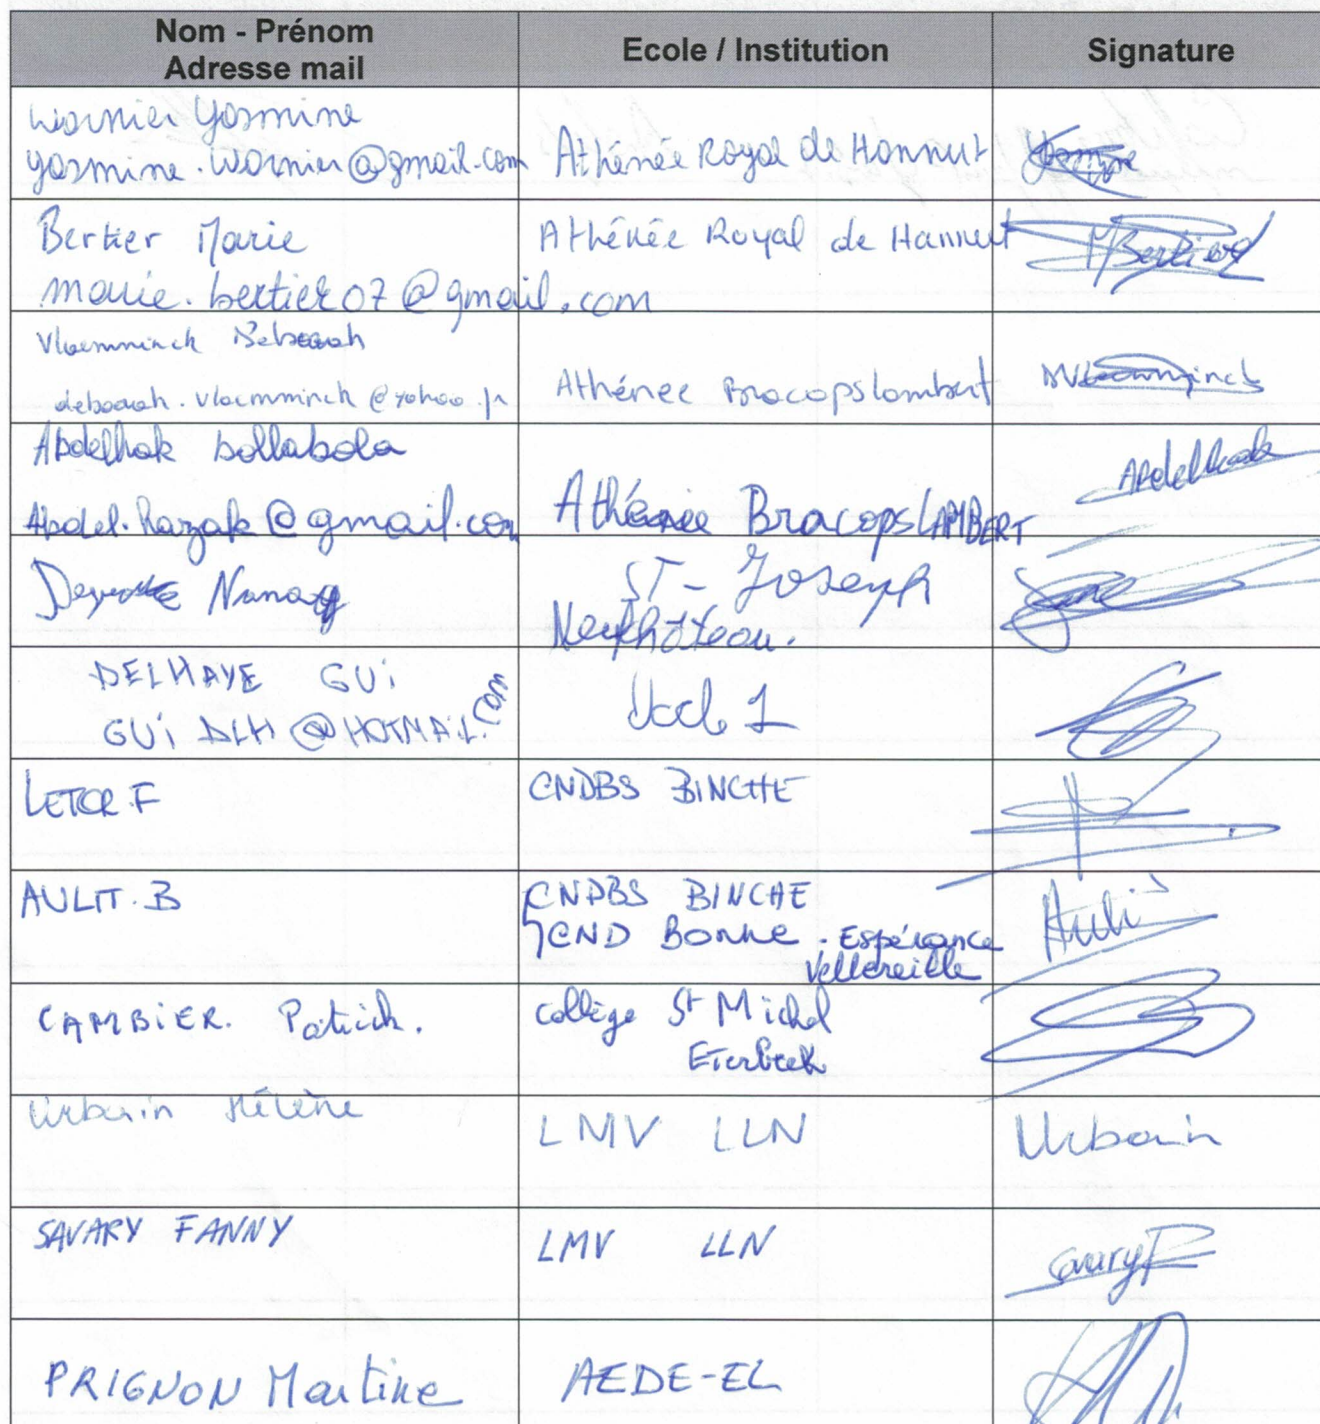 Nom - Prénom
Adresse mail
Ecole / Institution
Signature
Warnier Yasmine
yasmine.warnier@gmail.com
Athénée Royal de Hannut
Bertier Marie
marie.bertier07@gmail.com
Athénée Royal de Hannut
MBertier
Vlaemminck Deborah
deborah.vlaemminck@yahoo.fr
Athénée Bracops Lambert
DVlaemminck
Abdelhak
Abdel.hazak@gmail.com
Athénée Bracops LAMBERT
Abdelhak
ST-Joseph
Neufchâteau.
DELHAYE GUi
GUi DLH@HOTMAiL.com
Uccle 1
LETOR.F
CNDBS BINCHE
AULIT.B
CNDBS BINCHE
CND BONNE-Espérance
Vellereille
Auli
CAMBiER. Patrick.
Collège St Michel
Etterbeek
Urbain Hélène
LMV LLN
Urbain
SAVARY FANNY
LMV LLN
Savary F
PRIGNON Martine
AEDE-EL